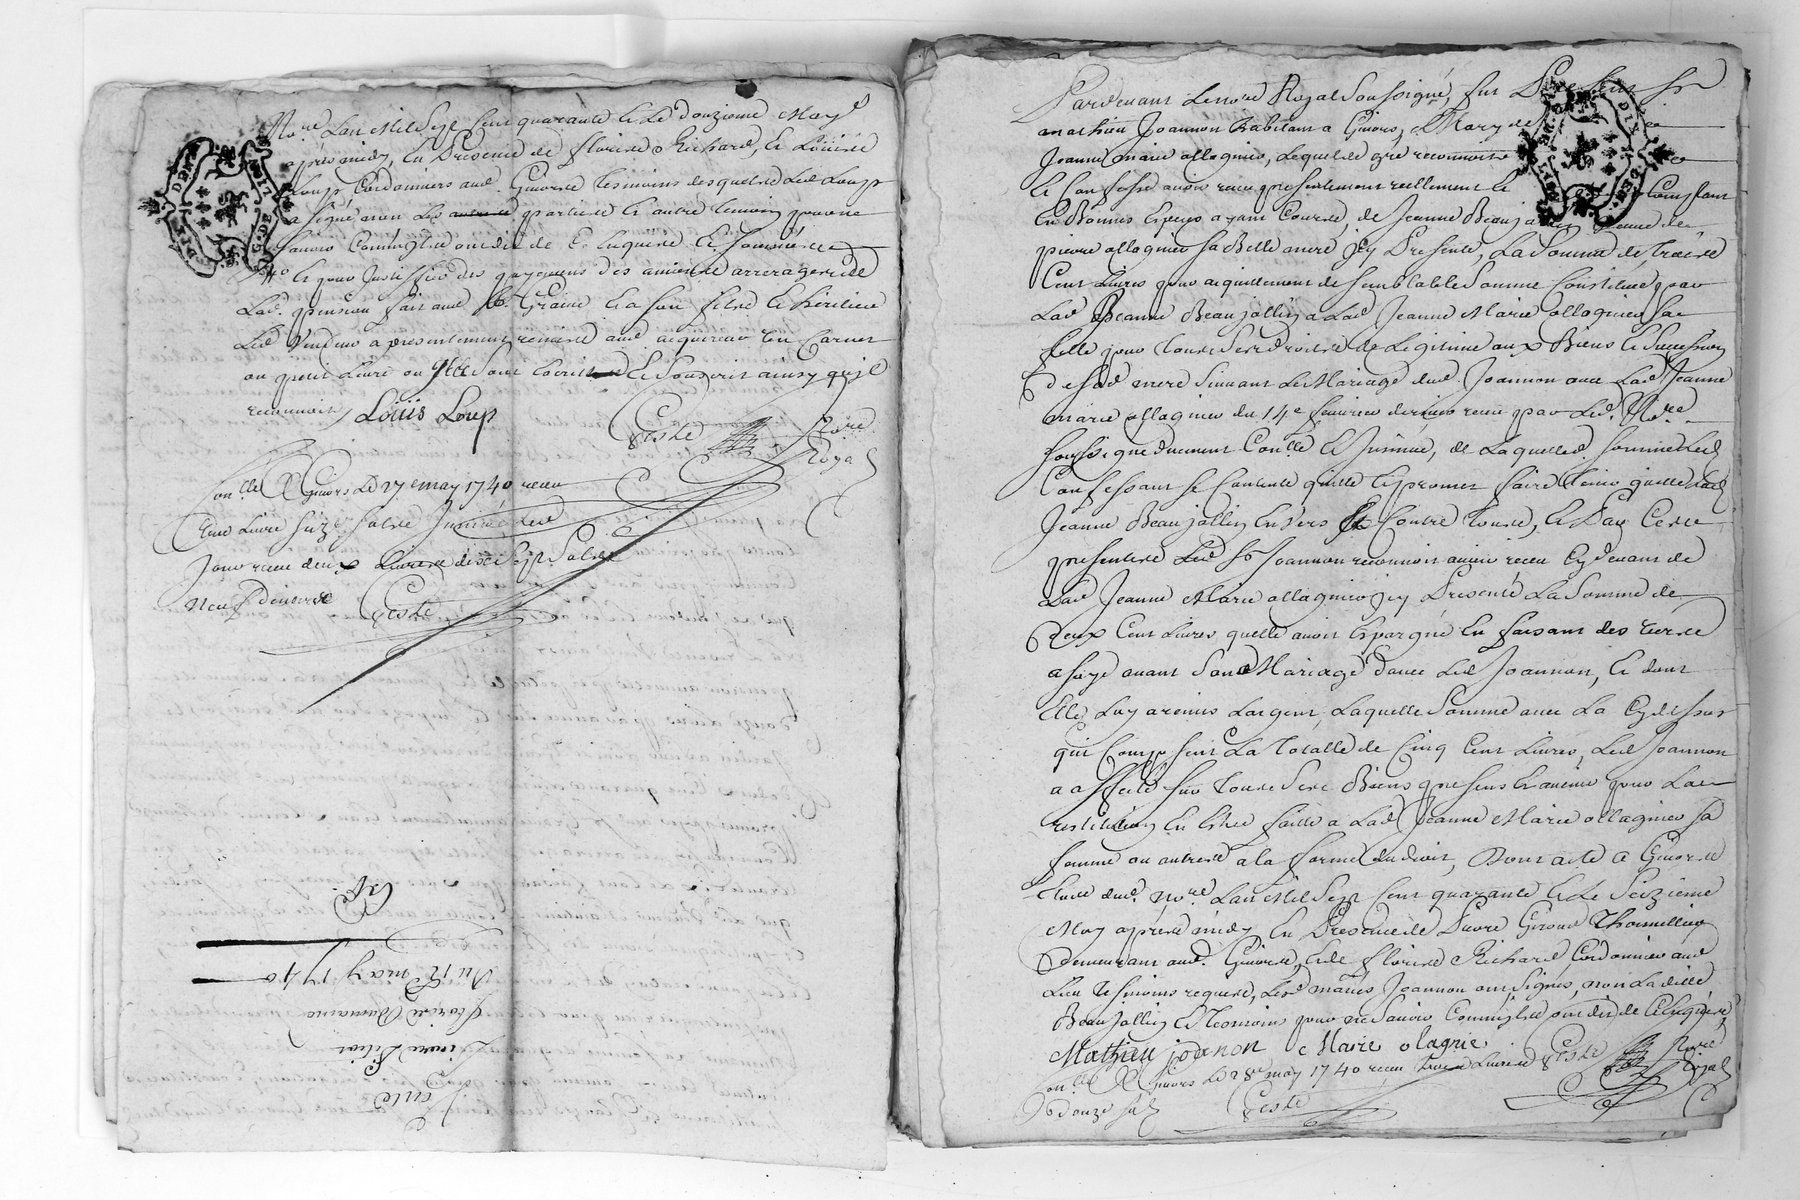 No.re L'an Mil Sept Cent quarante & Le Douzieme May
après midy, En Presence de Floris Richard, & Loüis
Loup Cordonniers aud. Givors Tesmoins desquels Led. Loup
a Signé non Les parties & autre temoin pour ne
sçavoir Comm'ils ont dit de Ce Enquis & Sommés
& pour Justiffier des payemens des arrerages de
Lad. pension fait aud. Sr. & a son fils & heritier
Led. Vendeur a presentement remis aud. acquereur un Carnet
ou petit Livre ou & Souscrit ainsy qu'il
reconnoit / Loüis Loup
Geste No.re Royal
Con.llé à Givors Le 27e may 1740 receu
Une Livre seize sols Insinué Led.
Jour receu deux Livres dix Sept Sols
neuf deniers Geste
Exp.
Du 12e may 1740
Floris
Pierre
Vente
Pardevant Le no.re Royal Soussigné, fut Present Sr
mathieu Joannon habitant a Givors, Mary de
Jeanne marie ollagnier, Lequel de gré reconnoit
& Confesse avoir receu presentement reellement & Comptant
En Bonnes Especes ayant Cours, de Jeanne Beaujollin veuve de
pierre ollagnier sa Belle mere icy Presente, La Somme de trois
Cent Livres pour aquittement de semblable Somme Constituée par
Lad. Jeanne Beaujollin a Lad. Jeanne Marie ollagnier sa
fille pour tous ses droits de Legitime aux Biens & Succession
de sad. mere Suivant Le Mariage dud. Joannon avec Lad. Jeanne
marie ollagnier du 14e fevrier dernier receu par Led. No.re
soussigné duement Con.llé & Insinué, de Laquelle somme Led.
Confessant se Contente quitte & promet faire tenir quitte Lad.
Jeanne Beaujollin Envers & Contre tous, & Par Ces
presentes Led. Sr Joannon reconnoit avoir receu Cy devant de
Lad. Jeanne Marie ollagnier icy Presente La Somme de
Deux Cent Livres quelle avoit Epargné En faisant des
a soye avant Son Mariage avec Led. Joannon, & dont
Elle Luy a remis L'argent, Laquelle Somme avec La Cy dessus
qui Compose La Totalle de Cinq Cent Livres, Led. Joannon
a affecté sur tous ses Biens presens & avenir pour La
restitution En Estre faitte a Lad. Jeanne Marie ollagnier sa
femme ou autres a la forme du droit, Dont acte a Givors
Etude dud. No.re L'an Mil Sept Cent quarante & Le Seizieme
May après midy En Presence de Giroud
Demeurant aud. Givors, & de Floris Richard Cordonnier aud.
Lieu Tesmoins requis, Les d. mariés Joannon ont Signés, non Laditte
Beaujollin & Tesmoins pour ne Sçavoir Comm'ils ont dit de Ce Enquis,
Mathieu joanon Marie olagnie Geste No.re
Royal
Con.llé à Givors Le 28e may 1740 receu trois Livres
Douze sols Geste